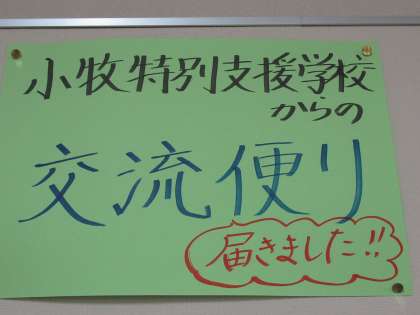 小牧特別支援学校
からの
交流便り
届きました!!